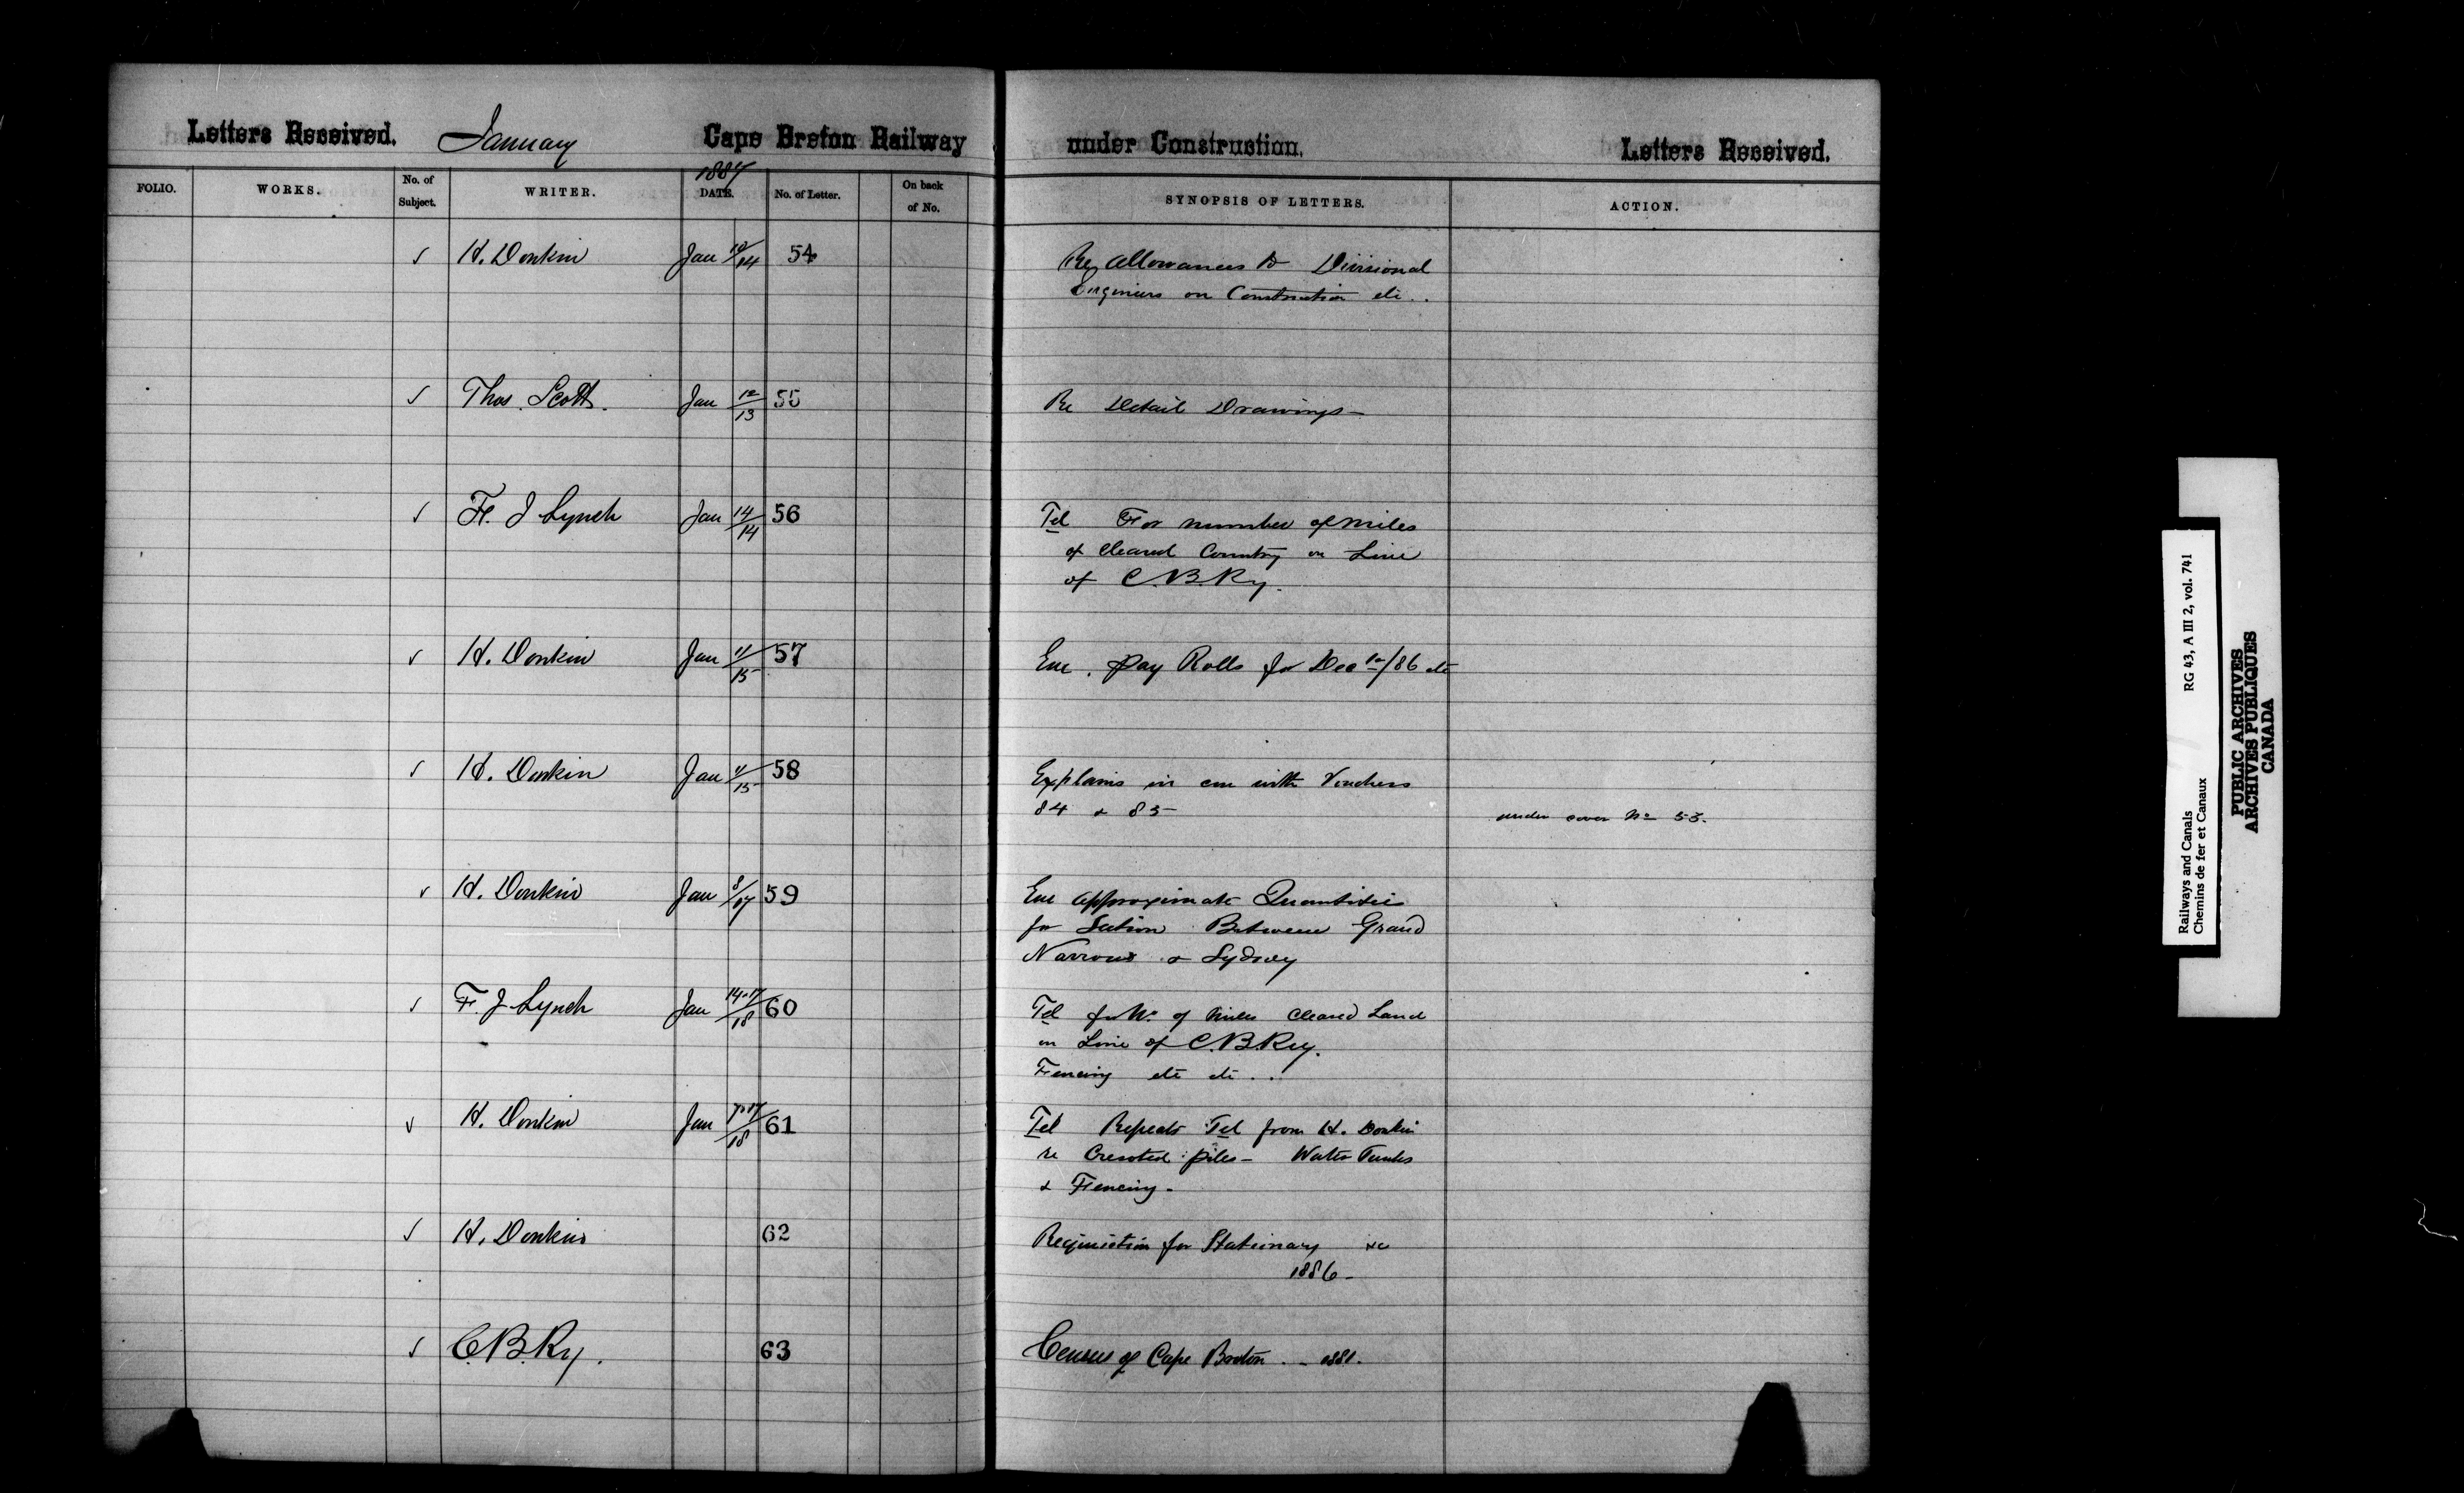 Letters Received. January Cape Breton Railway under Construction. Letters Received.
1887
FOLIO. WORKS. No. of Subject. WRITER. DATE. No. of Letter. On back of No. SYNOPSIS OF LETTERS. ACTION.
✓ H. Donkin Jan 12/14 54 Re Allowances to Divisional
Engineers on Construction etc..
✓ Thos. Scott. Jan 12/13 55 Re Detail Drawings—
✓ Fr. J Lynch Jan 14/14 56 Tel For number of miles
of cleared Country on Line
of C.B.Ry.
✓ H. Donkin Jan 11/15 57 Enc. Pay Rolls for Dec /86 etc
✓ H. Donkin Jan 11/15 58 Explains in con with Vouchers
84 & 85 under cover No 53.
✓ H. Donkin Jan 8/17 59 Enc approximate Quantities
for Section Between Grand
Narrows & Sydney
✓ F. J Lynch Jan 14-17/18 60 Tel for No. of miles cleared Land
on Line of C.B.Ry.
Fencing etc etc...
✓ H. Donkin Jan /18 61 Tel Repeats Tel from H. Donkin
re Creosoted piles— Water Tanks
& Fencing.
✓ H. Donkin 62 Requisition for Stationary &c
1886—
✓ C.B.Ry. 63 Census of Cape Breton. - 1881.
Railways and Canals RG 43, A III 2, vol. 741
Chemins de fer et Canaux
PUBLIC ARCHIVES
ARCHIVES PUBLIQUES
CANADA